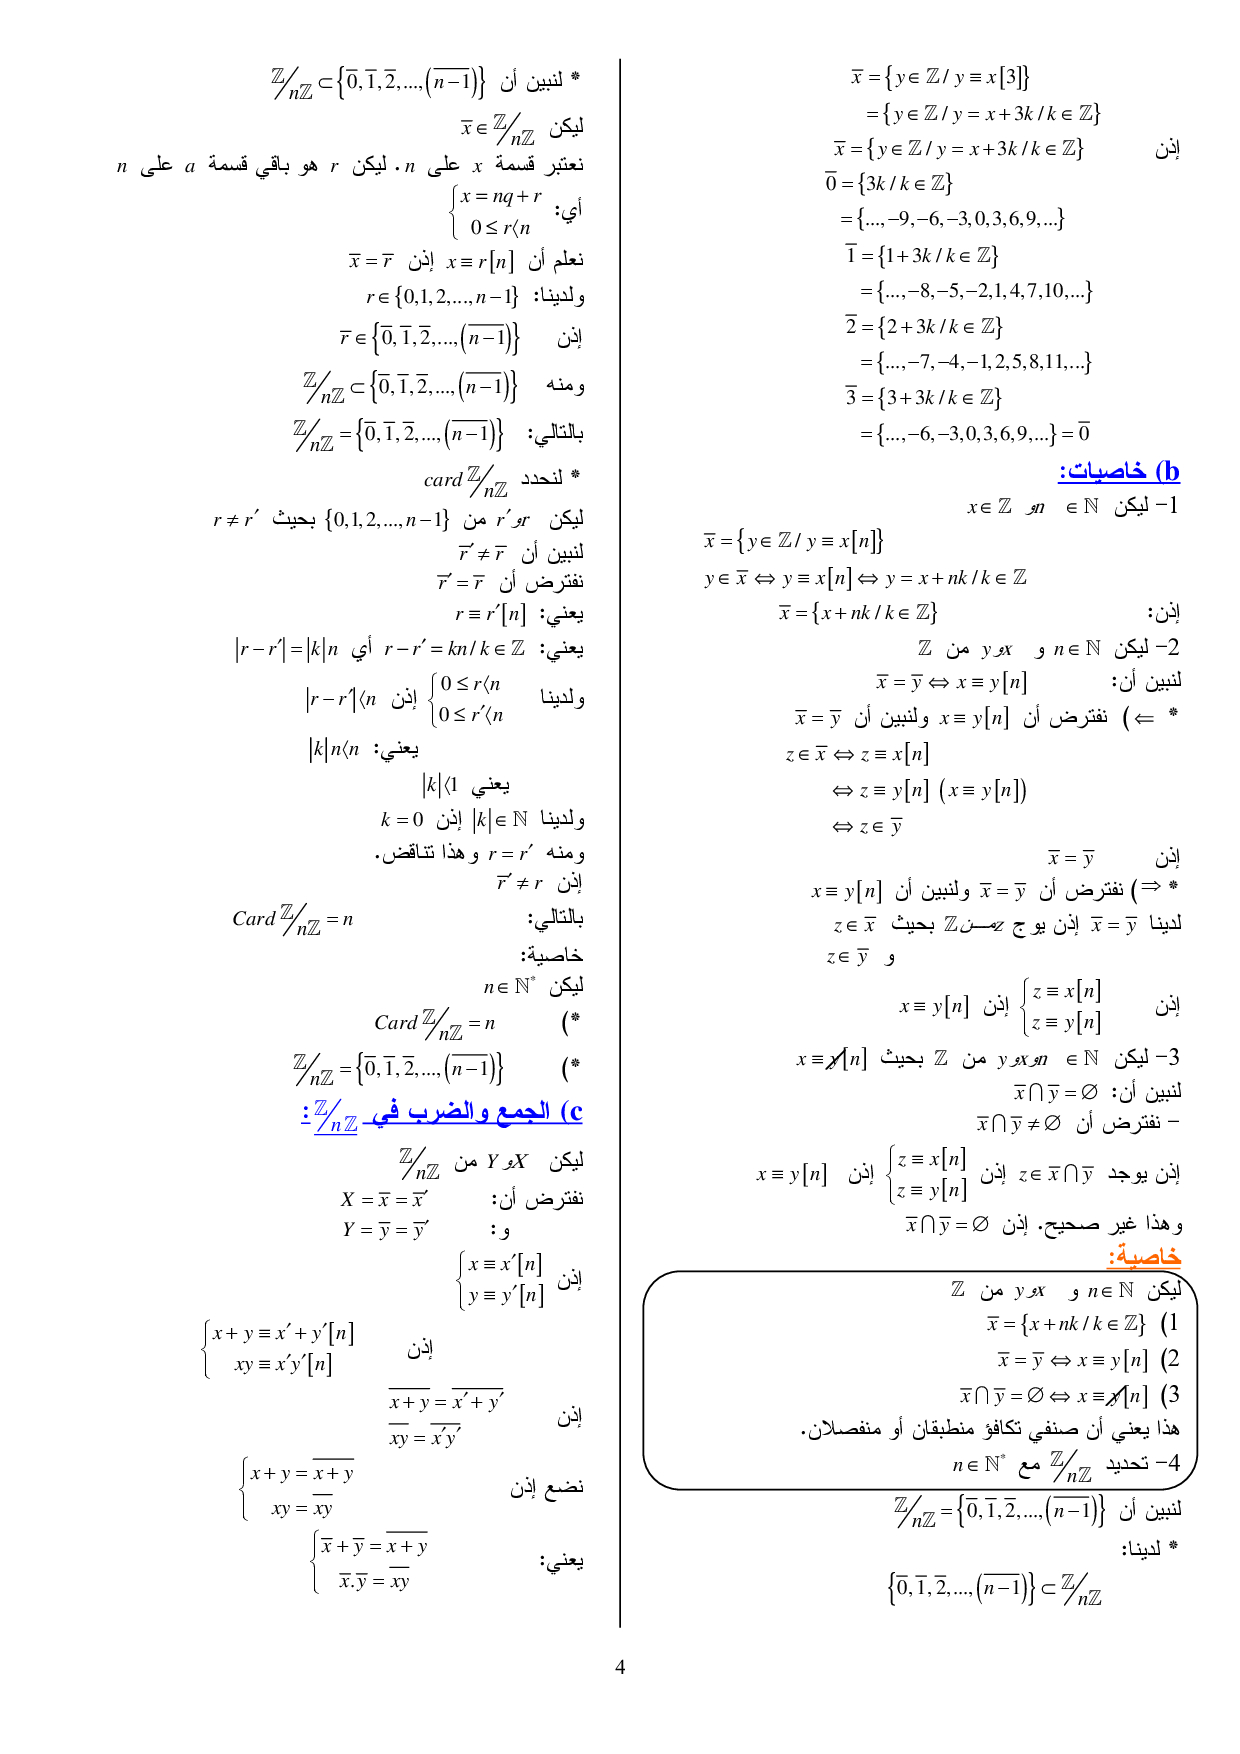 x̄ = {y ∈ ℤ / y ≡ x[3]}
= {y ∈ ℤ / y = x + 3k / k ∈ ℤ}
إذن x̄ = {y ∈ ℤ / y = x + 3k / k ∈ ℤ}
0̄ = {3k / k ∈ ℤ}
= {..., −9, −6, −3, 0, 3, 6, 9, ...}
1̄ = {1 + 3k / k ∈ ℤ}
= {..., −8, −5, −2, 1, 4, 7, 10, ...}
2̄ = {2 + 3k / k ∈ ℤ}
= {..., −7, −4, −1, 2, 5, 8, 11, ...}
3̄ = {3 + 3k / k ∈ ℤ}
= {..., −6, −3, 0, 3, 6, 9, ...} = 0̄
b) خاصيات:
1- ليكن n ∈ ℕ و x ∈ ℤ
x̄ = {y ∈ ℤ / y ≡ x[n]}
y ∈ x̄ ⇔ y ≡ x[n] ⇔ y = x + nk / k ∈ ℤ
إذن: x̄ = {x + nk / k ∈ ℤ}
2- ليكن n ∈ ℕ و x و y من ℤ
لنبين أن: x̄ = ȳ ⇔ x ≡ y[n]
* ⇐) نفترض أن x ≡ y[n] ولنبين أن x̄ = ȳ
z ∈ x̄ ⇔ z ≡ x[n]
⇔ z ≡ y[n] (x ≡ y[n])
⇔ z ∈ ȳ
إذن x̄ = ȳ
* ⇒) نفترض أن x̄ = ȳ ولنبين أن x ≡ y[n]
لدينا x̄ = ȳ إذن يوج z من ℤ بحيث z ∈ x̄
و z ∈ ȳ
إذن {z ≡ x[n] إذن x ≡ y[n]
z ≡ y[n]
3- ليكن n ∈ ℕ و x و y من ℤ بحيث x ≢ y[n]
لنبين أن: x̄ ∩ ȳ = ∅
- نفترض أن x̄ ∩ ȳ ≠ ∅
إذن يوجد z ∈ x̄ ∩ ȳ إذن {z ≡ x[n] إذن x ≡ y[n]
z ≡ y[n]
وهذا غير صحيح. إذن x̄ ∩ ȳ = ∅
خاصية:
ليكن n ∈ ℕ و x و y من ℤ
1) x̄ = {x + nk / k ∈ ℤ}
2) x̄ = ȳ ⇔ x ≡ y[n]
3) x̄ ∩ ȳ = ∅ ⇔ x ≢ y[n]
هذا يعني أن صنفي تكافؤ منطبقان أو منفصلان.
4- تحديد ℤ/nℤ مع n ∈ ℕ*
لنبين أن ℤ/nℤ = {0̄, 1̄, 2̄, ..., (n−1)̅}
* لدينا:
{0̄, 1̄, 2̄, ..., (n−1)̅} ⊂ ℤ/nℤ
* لنبين أن ℤ/nℤ ⊂ {0̄, 1̄, 2̄, ..., (n−1)̅}
ليكن x̄ ∈ ℤ/nℤ
نعتبر قسمة x على n. ليكن r هو باقي قسمة a على n
أي: {x = nq + r
0 ≤ r⟨n
نعلم أن x ≡ r[n] إذن x̄ = r̄
ولدينا: r ∈ {0, 1, 2, ..., n−1}
إذن r̄ ∈ {0̄, 1̄, 2̄, ..., (n−1)̅}
ومنه ℤ/nℤ ⊂ {0̄, 1̄, 2̄, ..., (n−1)̅}
بالتالي: ℤ/nℤ = {0̄, 1̄, 2̄, ..., (n−1)̅}
* لنحدد card ℤ/nℤ
ليكن r و r′ من {0, 1, 2, ..., n−1} بحيث r ≠ r′
لنبين أن r̄′ ≠ r̄
نفترض أن r̄′ = r̄
يعني: r ≡ r′[n]
يعني: r − r′ = kn / k ∈ ℤ أي |r − r′| = |k| n
ولدينا {0 ≤ r⟨n إذن |r − r′|⟨n
0 ≤ r′⟨n
يعني: |k| n⟨n
يعني |k|⟨1
ولدينا |k| ∈ ℕ إذن k = 0
ومنه r = r′ وهذا تناقض.
إذن r̄′ ≠ r
بالتالي: Card ℤ/nℤ = n
خاصية:
ليكن n ∈ ℕ*
*) Card ℤ/nℤ = n
*) ℤ/nℤ = {0̄, 1̄, 2̄, ..., (n−1)̅}
c) الجمع والضرب في ℤ/nℤ :
ليكن X و Y من ℤ/nℤ
نفترض أن: X = x̄ = x̄′
و: Y = ȳ = ȳ′
إذن {x ≡ x′[n]
y ≡ y′[n]
إذن {x + y ≡ x′ + y′[n]
xy ≡ x′y′[n]
إذن x̅+̅y̅ = x̅′̅+̅y̅′̅
x̅y̅ = x̅′̅y̅′̅
نضع إذن {x + y = x̅+̅y̅
xy = x̅y̅
يعني: {x̄ + ȳ = x̅+̅y̅
x̄.ȳ = x̅y̅
4